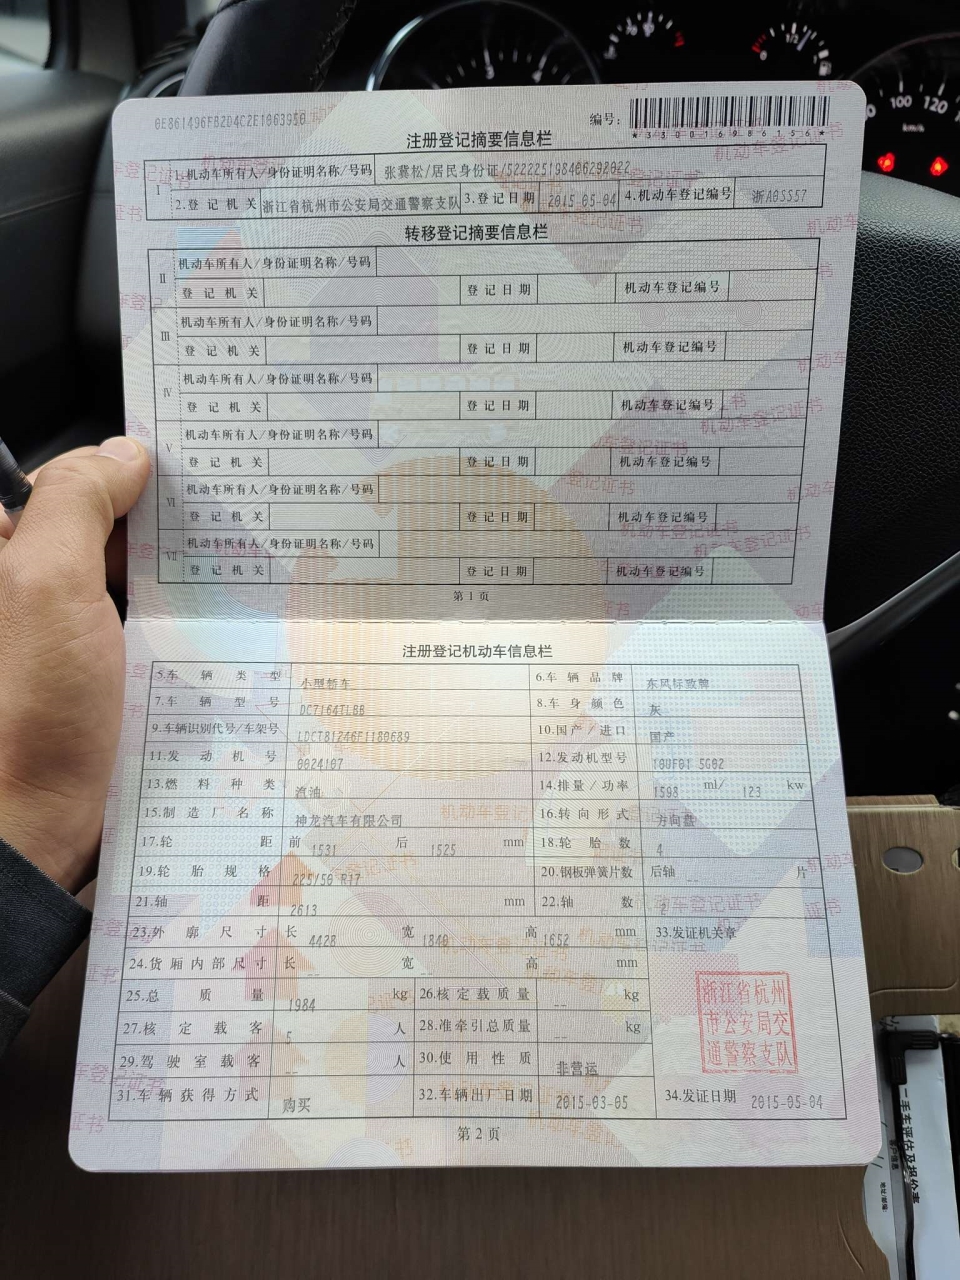 0E861496FB2D4C2E1063950
编号:
*330016986156*
注册登记摘要信息栏
I 1.机动车所有人/身份证明名称/号码 张冀松/居民身份证/522225198406298022
2.登记机关 浙江省杭州市公安局交通警察支队 3.登记日期 2015-05-04 4.机动车登记编号 浙A0SS57
转移登记摘要信息栏
II 机动车所有人/身份证明名称/号码
登记机关 登记日期 机动车登记编号
III 机动车所有人/身份证明名称/号码
登记机关 登记日期 机动车登记编号
IV 机动车所有人/身份证明名称/号码
登记机关 登记日期 机动车登记编号
V 机动车所有人/身份证明名称/号码
登记机关 登记日期 机动车登记编号
VI 机动车所有人/身份证明名称/号码
登记机关 登记日期 机动车登记编号
VII 机动车所有人/身份证明名称/号码
登记机关 登记日期 机动车登记编号
第1页
注册登记机动车信息栏
5.车辆类型 小型轿车 6.车辆品牌 东风标致牌
7.车辆型号 DC7164TLBB 8.车身颜色 灰
9.车辆识别代号/车架号 LDCT81246F1180689 10.国产/进口 国产
11.发动机号 0024107 12.发动机型号 10UF01 5G02
13.燃料种类 汽油 14.排量/功率 1598 ml/ 123 kw
15.制造厂名称 神龙汽车有限公司 16.转向形式 方向盘
17.轮距 前 1531 后 1525 mm 18.轮胎数 4
19.轮胎规格 225/50 R17 20.钢板弹簧片数 后轴 -- 片
21.轴距 2613 mm 22.轴数 2
23.外廓尺寸 长 4428 宽 1840 高 1652 mm 33.发证机关章
24.货厢内部尺寸 长 -- 宽 -- 高 -- mm
25.总质量 1984 kg 26.核定载质量 -- kg
浙江省杭州
市公安局交
通警察支队
27.核定载客 5 人 28.准牵引总质量 -- kg
29.驾驶室载客 -- 人 30.使用性质 非营运
31.车辆获得方式 购买 32.车辆出厂日期 2015-03-05 34.发证日期 2015-05-04
第2页
100 120
km/h
1/2
二手车评估及报价表